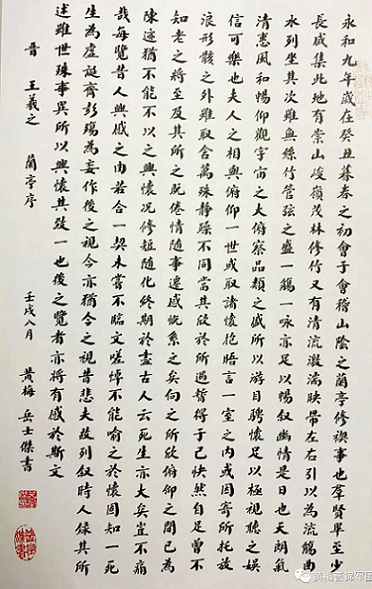 永和九年歲在癸丑暮春之初會于會稽山陰之蘭亭修禊事也羣賢畢至少
長咸集此地有崇山峻嶺茂林修竹又有清流激湍映帶左右引以為流觴曲
水列坐其次雖無絲竹管弦之盛一觴一詠亦足以暢叙幽情是日也天朗氣
清惠風和暢仰觀宇宙之大俯察品類之盛所以游目騁懷足以極視聽之娛
信可樂也夫人之相與俯仰一世或取諸懷抱晤言一室之內或因寄所托放
浪形骸之外雖取舍萬殊靜躁不同當其欣於所遇暫得於己快然自足曾不
知老之將至及其所之既倦情隨事遷感慨系之矣向之所欣俯仰之間已為
陳迹猶不能不以之興懷况修短隨化終期於盡古人云死生亦大矣豈不痛
哉每覽昔人興感之由若合一契未嘗不臨文嗟悼不能喻之於懷固知一死
生為虛誕齊彭殤為妄作後之視今亦猶今之視昔悲夫故列叙時人錄其所
述雖世殊事異所以興懷其致一也後之覽者亦將有感於斯文
晉 王羲之 蘭亭序 壬戌八月 黃梅 岳士傑書
黄梅